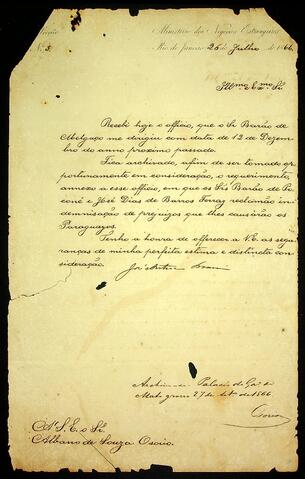 Secção
N. 3.
Ministerio dos Negocios Estrangeiros
Rio de Janeiro 26 de Julho de 1866
Illmo. e Exmo. Sr.
Recebi hoje o officio, que o Sr. Barão de
Melgaço me dirigiu com data de 12 de Dezem-
bro do anno proximo passado.
Fica archivado, afim de ser tomado op-
portunamente em consideração, o requerimento
annexo a esse officio, em que os Srs. Barão de Po-
coné e José Dias de Barros Ferraz reclamão in-
demnisação de prejuizos que lhes causarão os
Paraguayos.
Tenho a honra de offerecer a V.E. as segu-
ranças de minha perfeita estima e distincta con-
sideração.
Palacio do Go. de
Mato grosso 27 de 1866
A S. E. o Sr.
Albano de Souza Osorio.